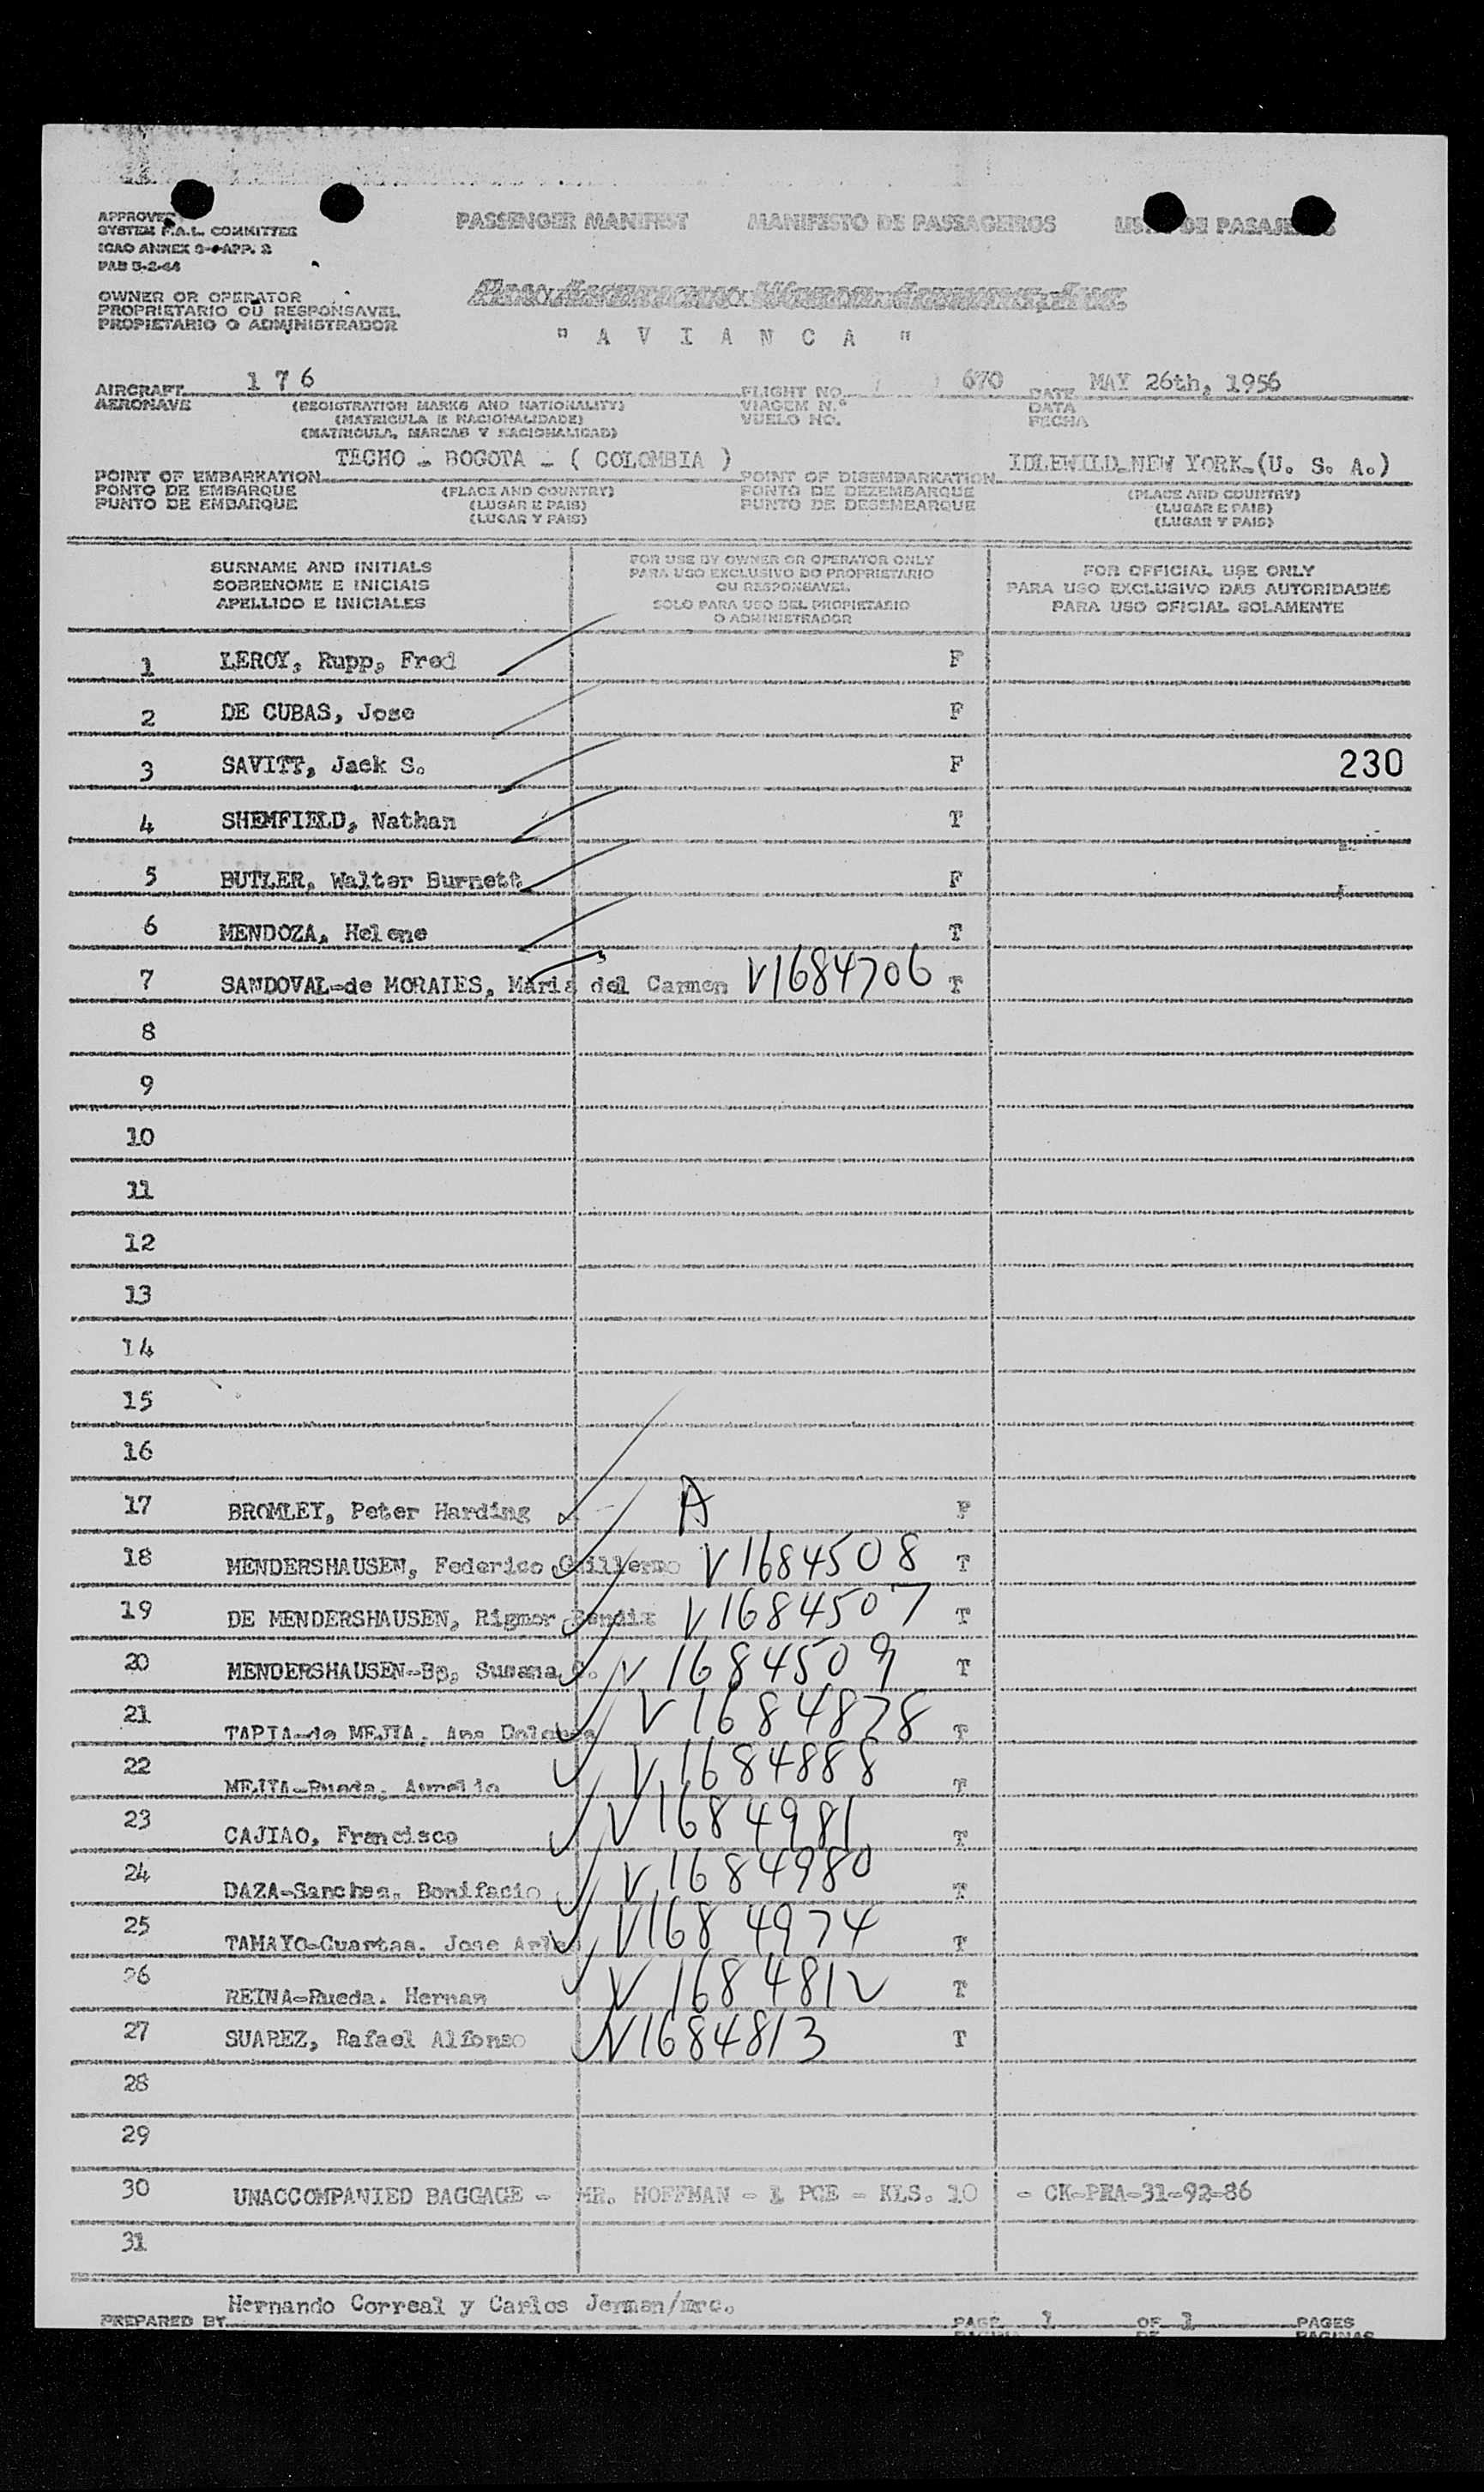 APPROVED
SYSTEM F.A.L. COMMITTEE
ICAO ANNEX 9-APP. 2
PAN 5-2-44
PASSENGER MANIFEST MANIFESTO DE PASSAGEIROS LISTA DE PASAJEROS
OWNER OR OPERATOR
PROPRIETARIO OU RESPONSAVEL
PROPIETARIO O ADMINISTRADOR
" A V I A N C A "
AIRCRAFT 1 7 6 FLIGHT NO. 670 DATE MAY 26th, 1956
AERONAVE (REGISTRATION MARKS AND NATIONALITY) VIAGEM N.º DATA
(MATRICULA E NACIONALIDADE) VUELO NO. FECHA
(MATRICULA, MARCAS Y NACIONALIDAD)
POINT OF EMBARKATION TECHO - BOGOTA - ( COLOMBIA ) POINT OF DISEMBARKATION IDLEWILD-NEW YORK-(U. S. A.)
PONTO DE EMBARQUE (PLACE AND COUNTRY) PONTO DE DEZEMBARQUE (PLACE AND COUNTRY)
PUNTO DE EMBARQUE (LUGAR E PAIS) PUNTO DE DESEMBARQUE (LUGAR E PAIS)
(LUGAR Y PAIS) (LUGAR Y PAIS)
SURNAME AND INITIALS
SOBRENOME E INICIAIS
APELLIDO E INICIALES
FOR USE BY OWNER OR OPERATOR ONLY
PARA USO EXCLUSIVO DO PROPRIETARIO
OU RESPONSAVEL
SOLO PARA USO DEL PROPIETARIO
O ADMINISTRADOR
FOR OFFICIAL USE ONLY
PARA USO EXCLUSIVO DAS AUTORIDADES
PARA USO OFICIAL SOLAMENTE
1 LEROY, Rupp, Fred F
2 DE CUBAS, Jose F
3 SAVITT, Jack S. F 230
4 SHEMFIELD, Nathan T
5 BUTLER, Walter Burnett F
6 MENDOZA, Helene T
7 SANDOVAL-de MORALES, Maria del Carmen V1684706 T
8
9
10
11
12
13
14
15
16
17 BROMLEY, Peter Harding A F
18 MENDERSHAUSEN, Federico Guillermo V1684508 T
19 DE MENDERSHAUSEN, Rigmor Bendix V1684507 T
20 MENDERSHAUSEN-Bp, Susana C. V1684509 T
21 TAPIA-de MEJIA, Ana Dolores V1684878 T
22 MEJIA-Rueda, Aurelio V1684888 T
23 CAJIAO, Francisco V1684981 T
24 DAZA-Sanchez, Bonifacio V1684980 T
25 TAMAYO-Cuartas, Jose V1684974 T
26 REINA-Rueda, Hernan V1684812 T
27 SUAREZ, Rafael Alfonso V1684813 T
28
29
30 UNACCOMPANIED BAGGAGE - MR. HOFFMAN - 1 PCE - KLS. 10 - CK-PRA-31-92-86
31
PREPARED BY Hernando Correal y Carlos Jerman/mrc. PAGE 1 OF 1 PAGES